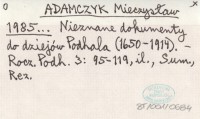 ADAMCZYK Mieczysław
1985... Nieznane dokumenty
do dziejów Podhala (1650-1914). -
Rocz. Podh. 3: 95-119, il., Sum,
Rez.